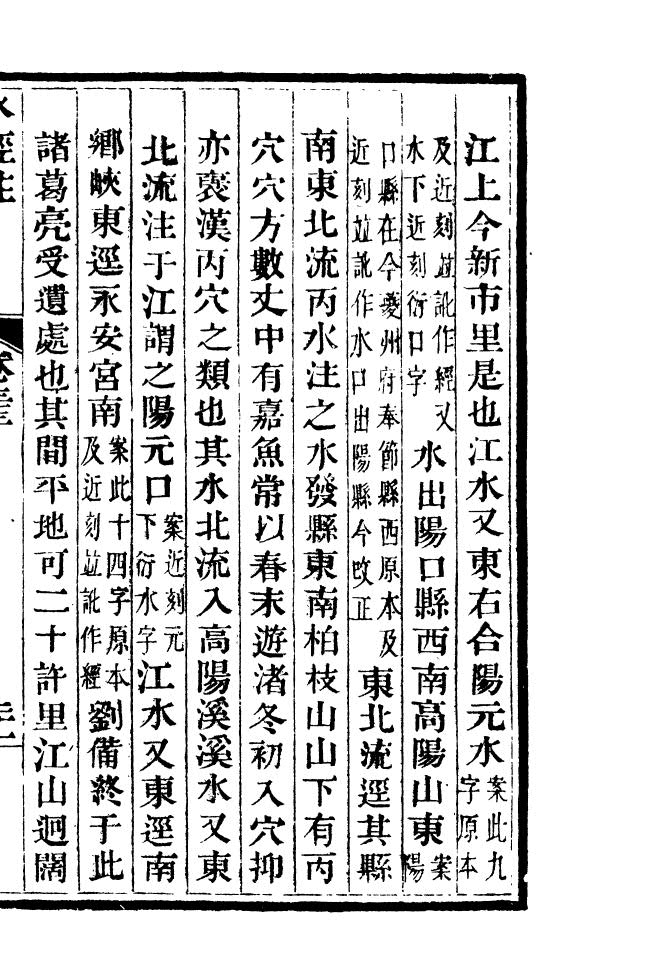 江上今新市里是也江水又東右合陽元水案此九字原本
及近刻並訛作經又水下近刻衍口字水出陽口縣西南高陽山東案陽
口縣在今夔州府奉節縣西原本及近刻並訛作水口出陽縣今改正東北流逕其縣
南東北流丙水注之水發縣東南柏枝山山下有丙
穴穴方數丈中有嘉魚常以春末遊渚冬初入穴抑
亦褒漢丙穴之類也其水北流入高陽溪溪水又東
北流注于江謂之陽元口案近刻元下衍水字江水又東逕南
鄉峽東逕永安宮南案此十四字原本及近刻並訛作經劉備終于此
諸葛亮受遺處也其間平地可二十許里江山迥闊
水經注 卷三十三